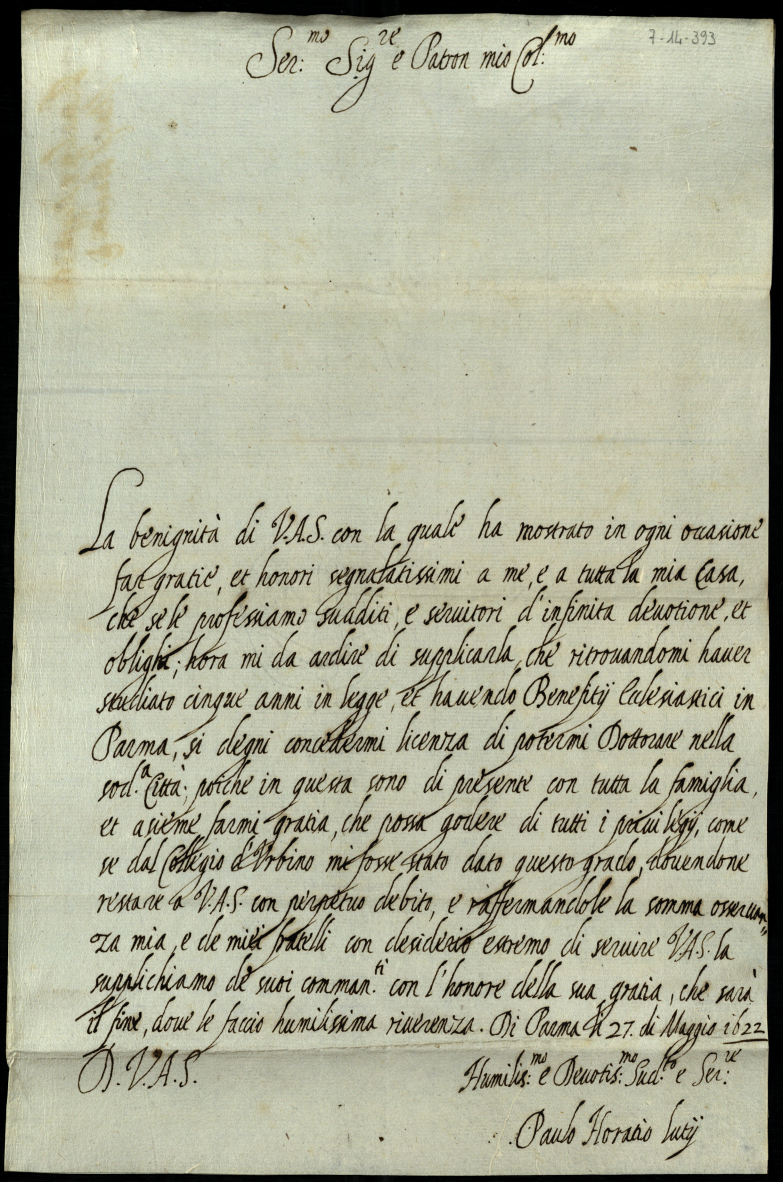 7-14-393
Ser:mo Sigre e Patron mio Col:mo
La benignità di V.A.S. con la quale ha mostrato in ogni occasione
far gratie, et honori segnalatissimi a me, e a tutta la mia Casa,
che se le professiamo sudditi, e seruitori d'infinita deuotione, et
oblighi; hora mi da ardire di supplicarla, che ritrouandomi hauer
studiato cinque anni in legge, et hauendo Benefitij Eclesiastici in
Parma, si degni concedermi licenza di potermi Dottorare nella
sod.a Città; poiche in questa sono di presente con tutta la famiglia,
et asieme farmi gratia, che possa godere di tutti i priuilegij, come
se dal Collegio d'Vrbino mi fosse stato dato questo grado, douendone
restare a V.A.S. con perpetuo debito, e raffermandole la somma osseruan=
za mia, e de miei fratelli con desiderio estremo di seruire V.A.S. la
supplichiamo de suoi comman.ti con l'honore della sua gratia, che sarà
il fine, doue le faccio humilissima riuerenza. Di Parma li 27. di Maggio 1622
D. V. A. S.
Humilis:mo e Deuotis:mo Sud:to e Ser:re
Paulo Horatio Lutij